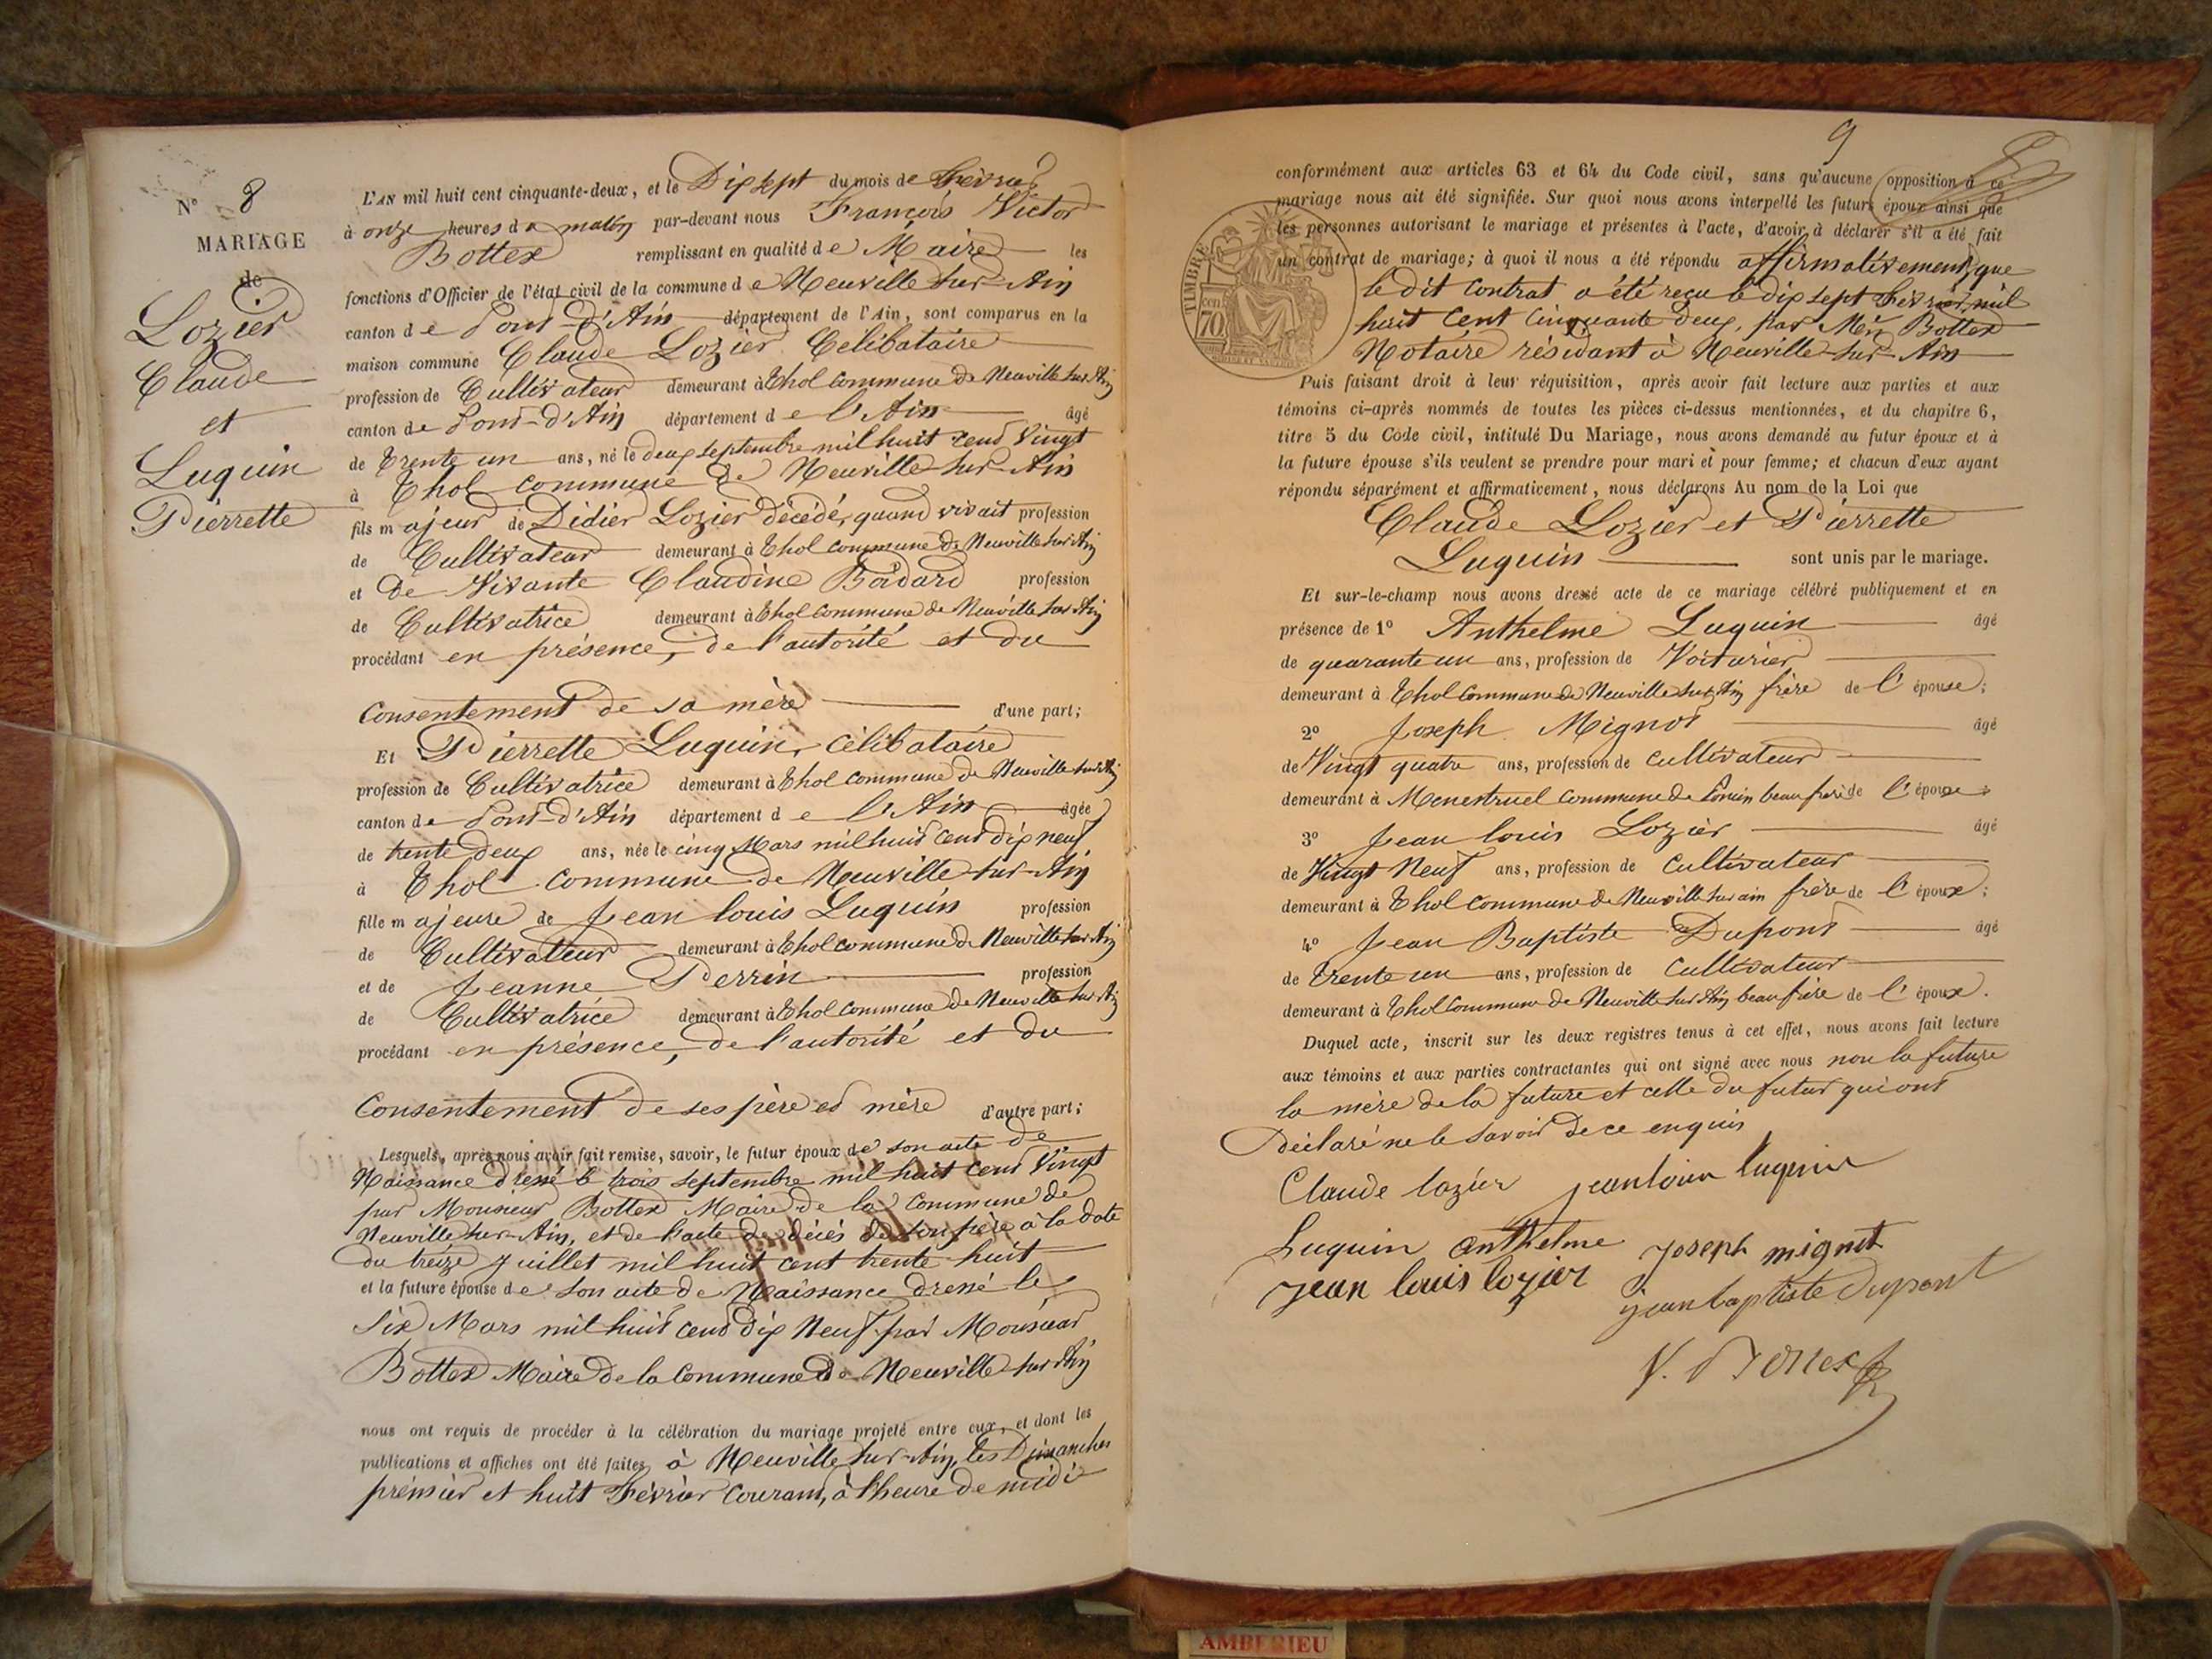 N° 8
MARIAGE
de
Lozier
Claude
et
Luquin
Pierrette
L'AN mil huit cent cinquante-deux, et le Dix sept du mois de Février
à onze heures du matin par-devant nous François Victor
Bottex remplissant en qualité de Maire les
fonctions d'Officier de l'état civil de la commune de Neuville sur Ain
canton de Pont-d'Ain département de l'Ain, sont comparus en la
maison commune Claude Lozier Célibataire
profession de Cultivateur demeurant à Thol commune de Neuville sur Ain
canton de Pont-d'Ain département de l'Ain âgé
de trente un ans, né le deux septembre mil huit cent vingt
à Thol commune de Neuville sur Ain
fils majeur de Didier Lozier décédé, quand vivait profession
de Cultivateur demeurant à Thol commune de Neuville sur Ain
et de Vivante Claudine Badard profession
de Cultivatrice demeurant à Thol commune de Neuville sur Ain
procédant en présence, de l'autorité et du
Consentement de sa mère d'une part;
Et Pierrette Luquin, célibataire
profession de Cultivatrice demeurant à Thol commune de Neuville sur Ain
canton de Pont-d'Ain département de l'Ain âgée
de trente deux ans, née le cinq Mars mil huit cent dix neuf
à Thol commune de Neuville sur Ain
fille majeure de Jean louis Luquin profession
de Cultivateur demeurant à Thol commune de Neuville sur Ain
et de Jeanne Perrin profession
de Cultivatrice demeurant à Thol commune de Neuville sur Ain
procédant en présence, de l'autorité et du
Consentement de ses père et mère d'autre part;
Lesquels, après nous avoir fait remise, savoir, le futur époux de son acte de
Naissance dressé le trois septembre mil huit cent vingt
par Monsieur Bottex Maire de la commune de
Neuville sur Ain, et de l'acte de décès de son père à la date
du treize juillet mil huit cent trente huit
et la future épouse de son acte de Naissance dressé le
Six Mars mil huit cent dix Neuf par Monsieur
Bottex Maire de la commune de Neuville sur Ain
nous ont requis de procéder à la célébration du mariage projeté entre eux, et dont les
publications et affiches ont été faites à Neuville sur Ain, les Dimanches
premier et huit Février courant, à l'heure de midi
9
conformément aux articles 63 et 64 du Code civil, sans qu'aucune opposition à ce
mariage nous ait été signifiée. Sur quoi nous avons interpellé les futurs époux ainsi que
les personnes autorisant le mariage et présentes à l'acte, d'avoir à déclarer s'il a été fait
un contrat de mariage; à quoi il nous a été répondu affirmativement, que
le dit contrat a été reçu le dix sept Février, mil
huit cent cinquante deux, par Mtre Bottex
Notaire résidant à Neuville-sur-Ain
TIMBRE
70
Puis faisant droit à leur réquisition, après avoir fait lecture aux parties et aux
témoins ci-après nommés de toutes les pièces ci-dessus mentionnées, et du chapitre 6,
titre 5 du Code civil, intitulé Du Mariage, nous avons demandé au futur époux et à
la future épouse s'ils veulent se prendre pour mari et pour femme; et chacun d'eux ayant
répondu séparément et affirmativement, nous déclarons Au nom de la Loi que
Claude Lozier et Pierrette
Luquin sont unis par le mariage.
Et sur-le-champ nous avons dressé acte de ce mariage célébré publiquement et en
présence de 1° Anthelme Luquin âgé
de quarante un ans, profession de Voiturier
demeurant à Thol commune de Neuville sur Ain frère de l'épouse;
2° Joseph Mignot âgé
de Vingt quatre ans, profession de cultivateur
demeurant à Menestruel commune de Poncin beau frère de l'époux;
3° Jean louis Lozier âgé
de Vingt Neuf ans, profession de cultivateur
demeurant à Thol commune de Neuville sur ain frère de l'époux;
4° Jean Baptiste Dupont âgé
de trente un ans, profession de cultivateur
demeurant à Thol commune de Neuville sur Ain beau frère de l'époux.
Duquel acte, inscrit sur les deux registres tenus à cet effet, nous avons fait lecture
aux témoins et aux parties contractantes qui ont signé avec nous non la future
la mère de la future et celle du futur qui ont
déclaré ne le savoir de ce enquis
Claude lozier jean louis luquin
Luquin anthelme joseph mignot
jean louis lozier jean baptiste Dupont
V. Bottex
AMBERIEU